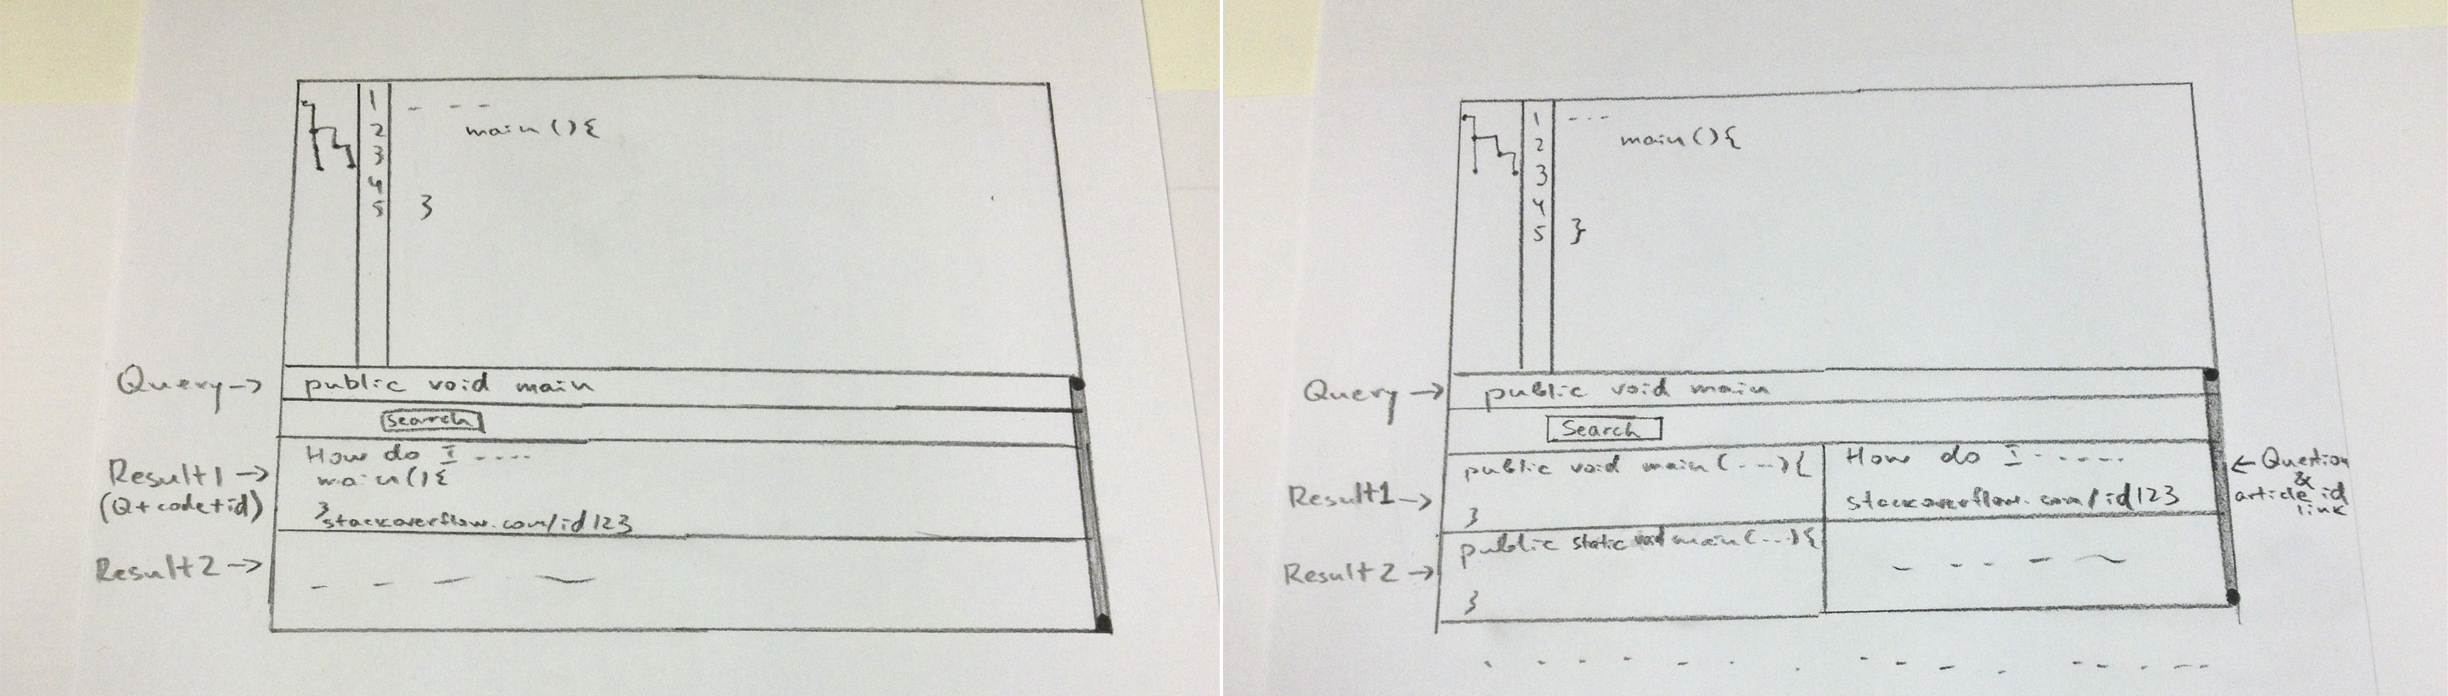 1 - - -
2 main(){
3
4
5 }
Query→ public void main
Search
Result1→ How do I ....
(Q+code+id) main(){
}
stackoverflow.com/id123
Result2→
1 - - -
2 main(){
3
4
5 }
Query→ public void main
Search
Result1→ public void main(...){
}
How do I .....
stackoverflow.com/id123
←Question
&
article id
link
Result2→ public static void main(...){
}